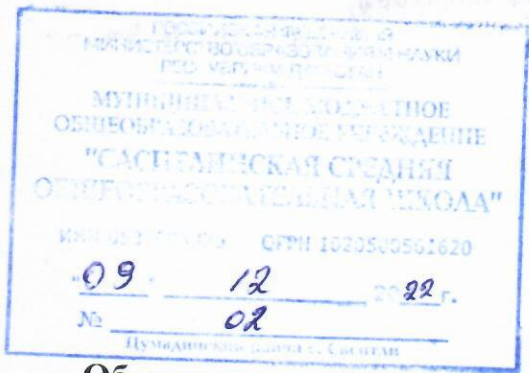 РОССИЙСКАЯ
МИНИСТЕРСТВО ОБРАЗОВАНИЯ И НАУКИ
РЕСПУБЛИКИ ДАГЕСТАН
МУНИЦИПАЛЬНОЕ БЮДЖЕТНОЕ
ОБЩЕОБРАЗОВАТЕЛЬНОЕ УЧРЕЖДЕНИЕ
"САСИТЛИНСКАЯ СРЕДНЯЯ
ОБЩЕОБРАЗОВАТЕЛЬНАЯ ШКОЛА"
ИНН ОГРН 1020500561620
"09" 12 2022 г.
№ 02
Цумадинский района с. Саситли